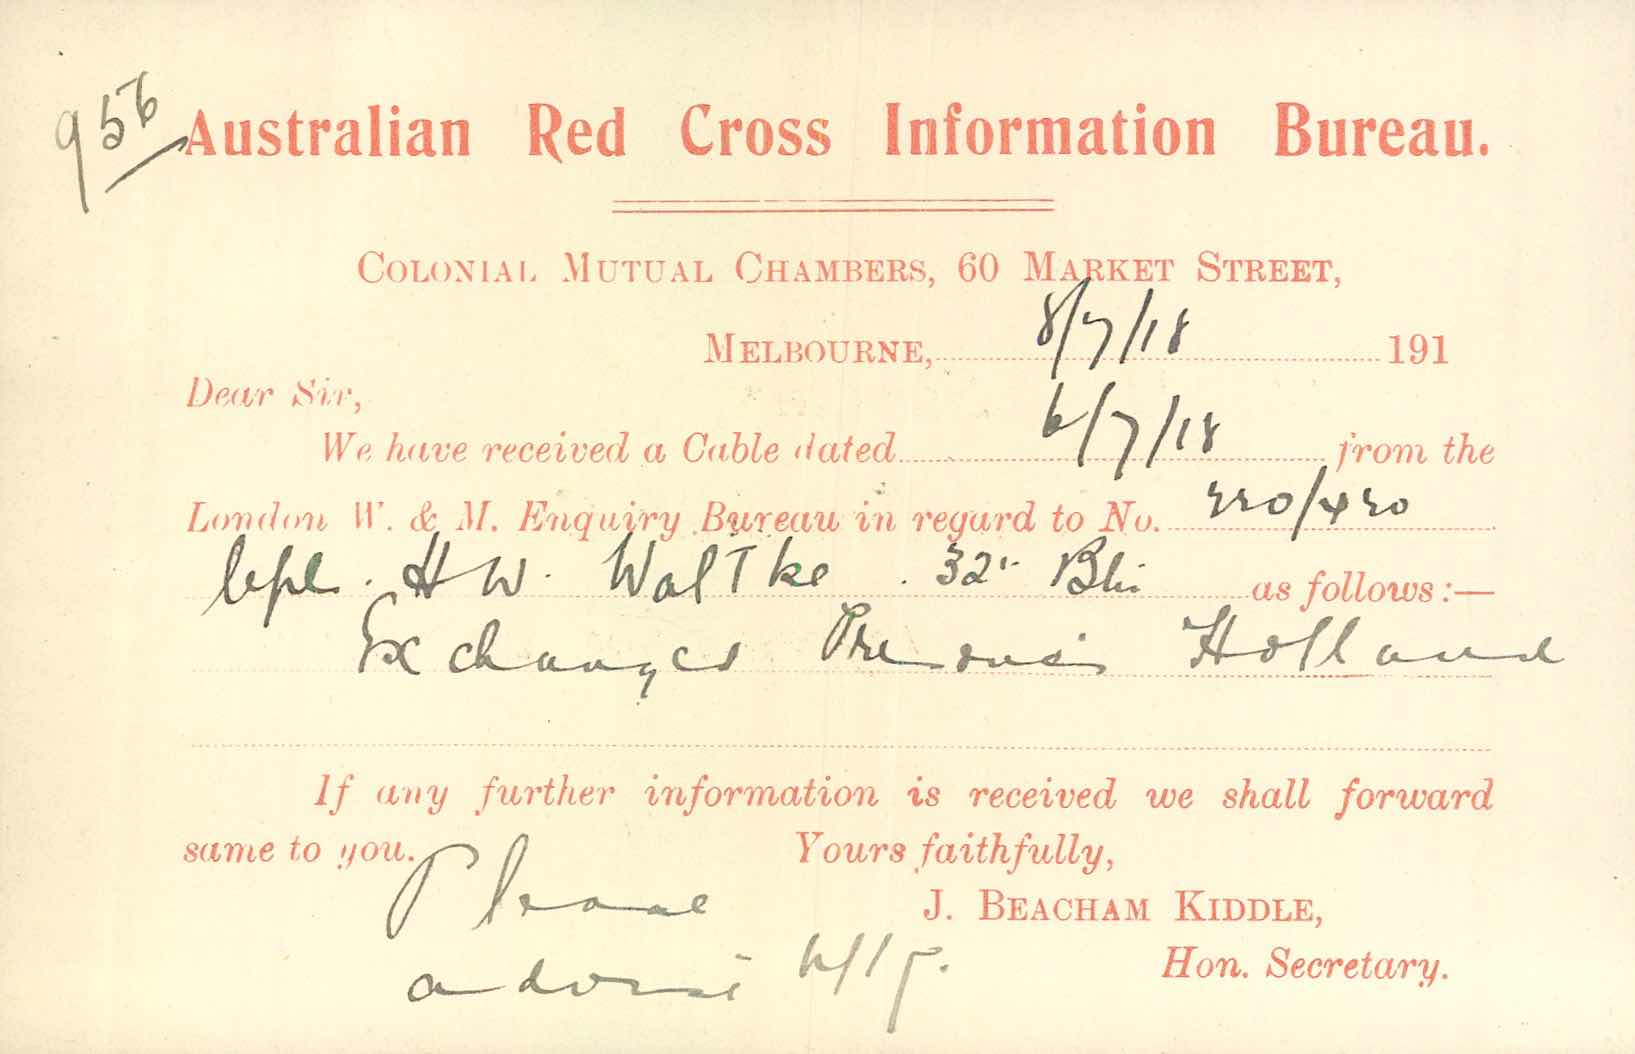 956
Australian Red Cross Information Bureau.
COLONIAL MUTUAL CHAMBERS, 60 MARKET STREET,
MELBOURNE, 8/7/18 191
Dear Sir,
We have received a Cable dated 6/7/18 from the
London W. & M. Enquiry Bureau in regard to No. 220/420
Cpl. H W. Waltke. 32nd Bn as follows:—
Exchanged Prisoner Holland
If any further information is received we shall forward
same to you. Yours faithfully,
Please J. BEACHAM KIDDLE,
advise Hon. Secretary.